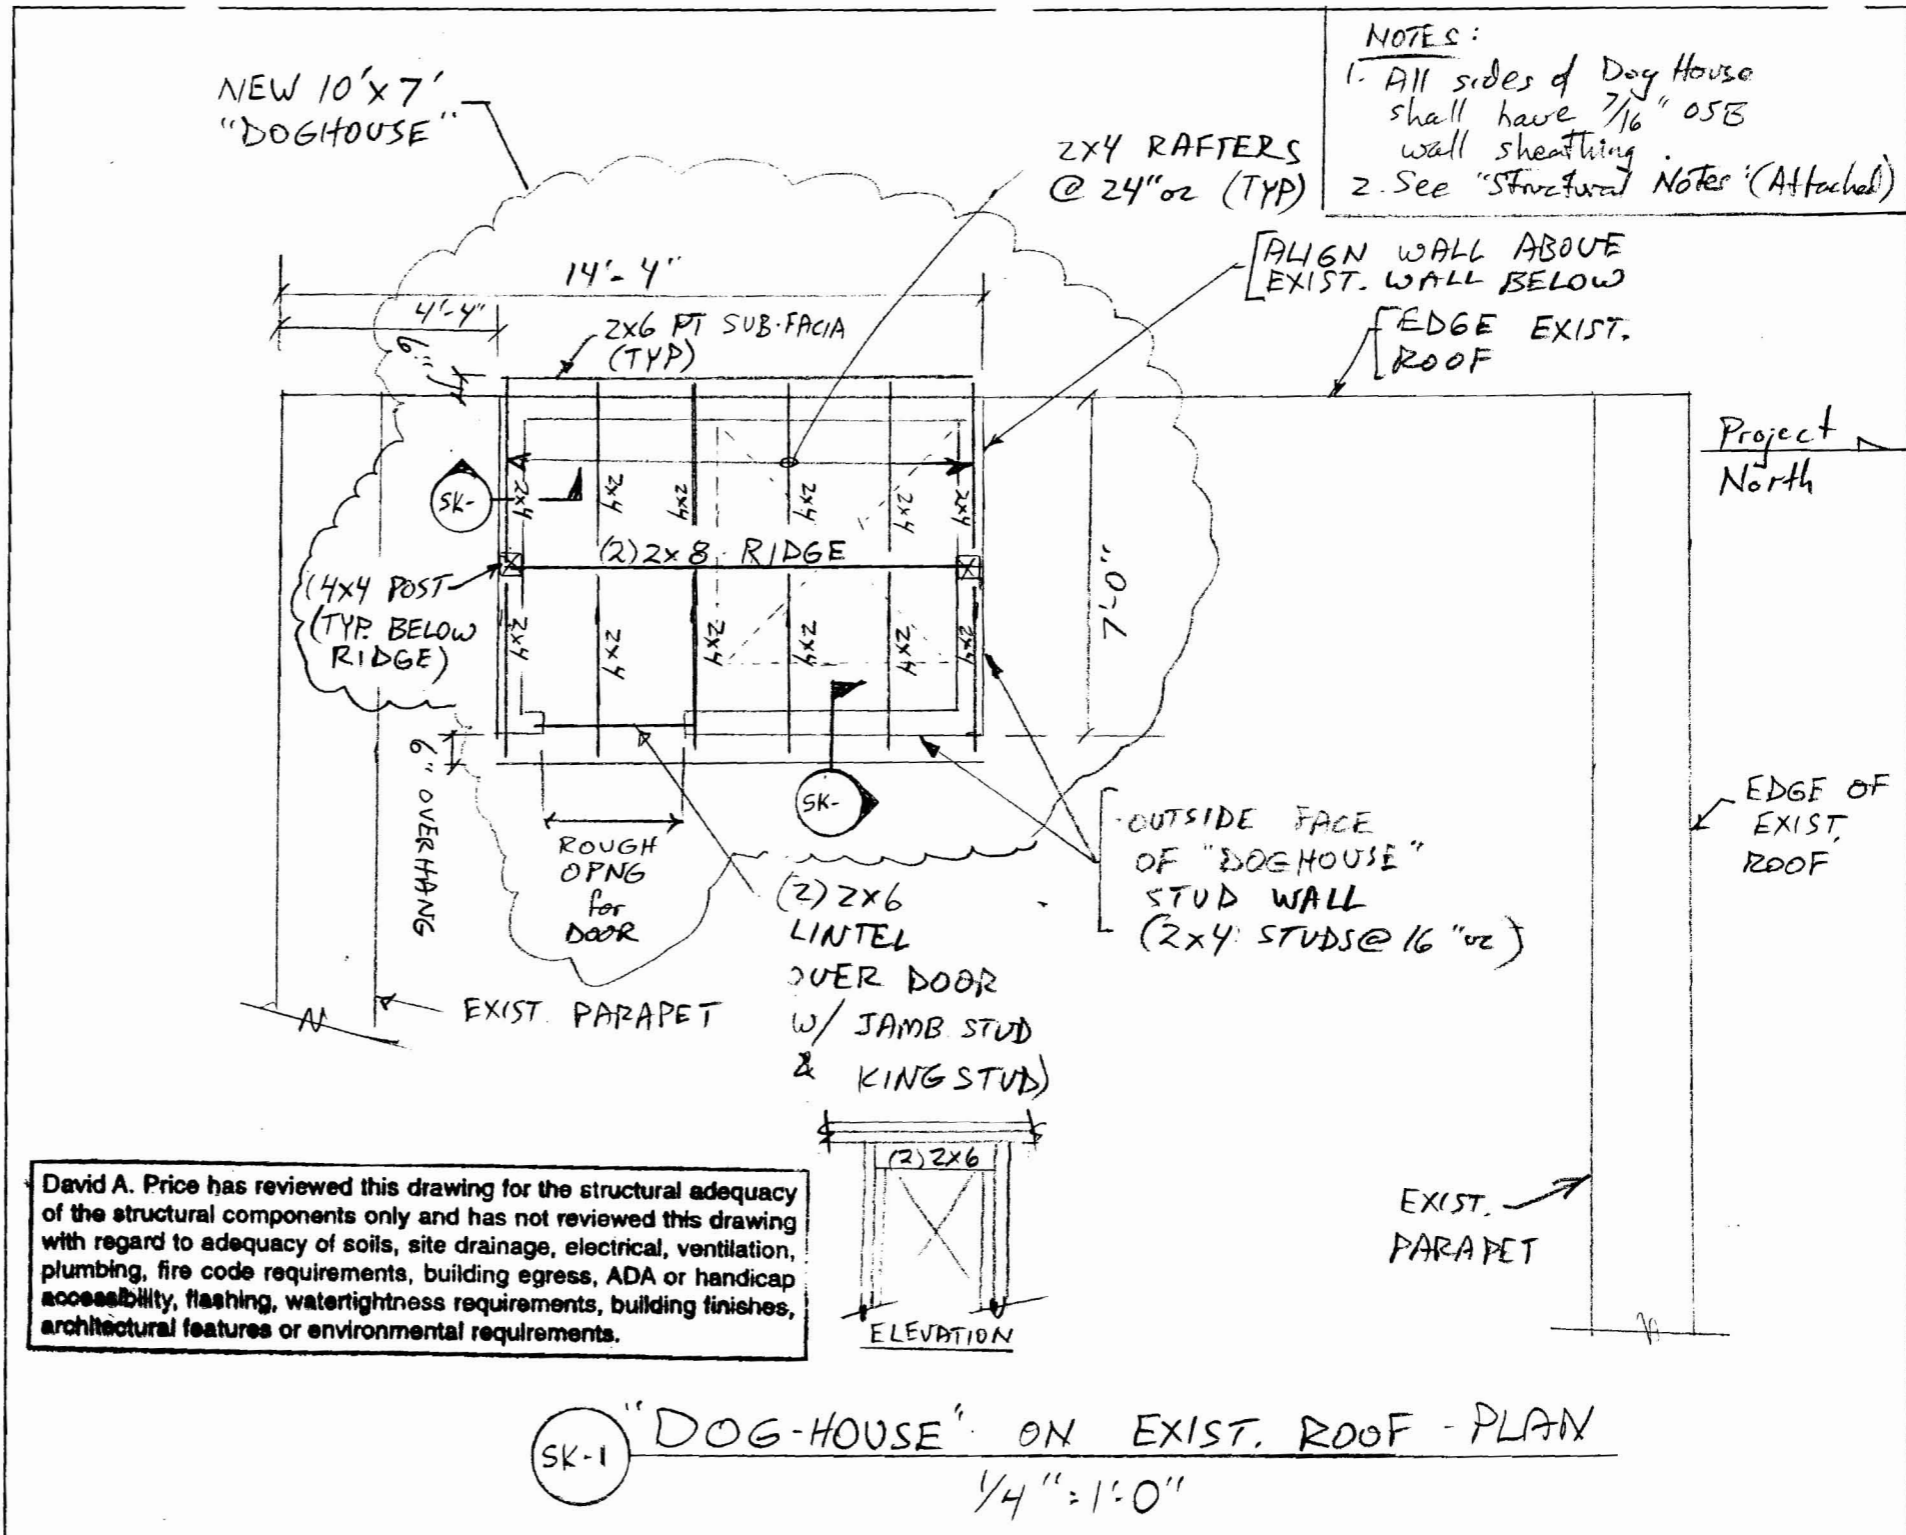 NEW 10'x7'
"DOGHOUSE"
NOTES:
1. All sides of Dog House
shall have 7/16" OSB
wall sheathing.
2. See "Structural Notes" (Attached)
2x4 RAFTERS
@ 24"oc (TYP)
ALIGN WALL ABOVE
EXIST. WALL BELOW
EDGE EXIST.
ROOF
14'-4"
4'-4"
6"
2x6 PT SUB-FACIA
(TYP)
Project
North
SK-
2x4
2x4
2x4
2x4
2x4
2x4
(2) 2x8 RIDGE
(4x4 POST
(TYP. BELOW
RIDGE)
2x4
2x4
2x4
2x4
2x4
2x4
7'-0"
6" OVERHANG
SK-
ROUGH
OPNG
for
DOOR
(2) 2x6
LINTEL
OVER DOOR
W/ JAMB STUD
& KING STUD)
OUTSIDE FACE
OF "DOGHOUSE"
STUD WALL
(2x4 STUDS @ 16"oc)
EDGE OF
EXIST.
ROOF
EXIST. PARAPET
(2) 2x6
ELEVATION
EXIST.
PARAPET
David A. Price has reviewed this drawing for the structural adequacy
of the structural components only and has not reviewed this drawing
with regard to adequacy of soils, site drainage, electrical, ventilation,
plumbing, fire code requirements, building egress, ADA or handicap
accessibility, flashing, watertightness requirements, building finishes,
architectural features or environmental requirements.
SK-1
"DOG-HOUSE" ON EXIST. ROOF - PLAN
1/4" = 1'-0"